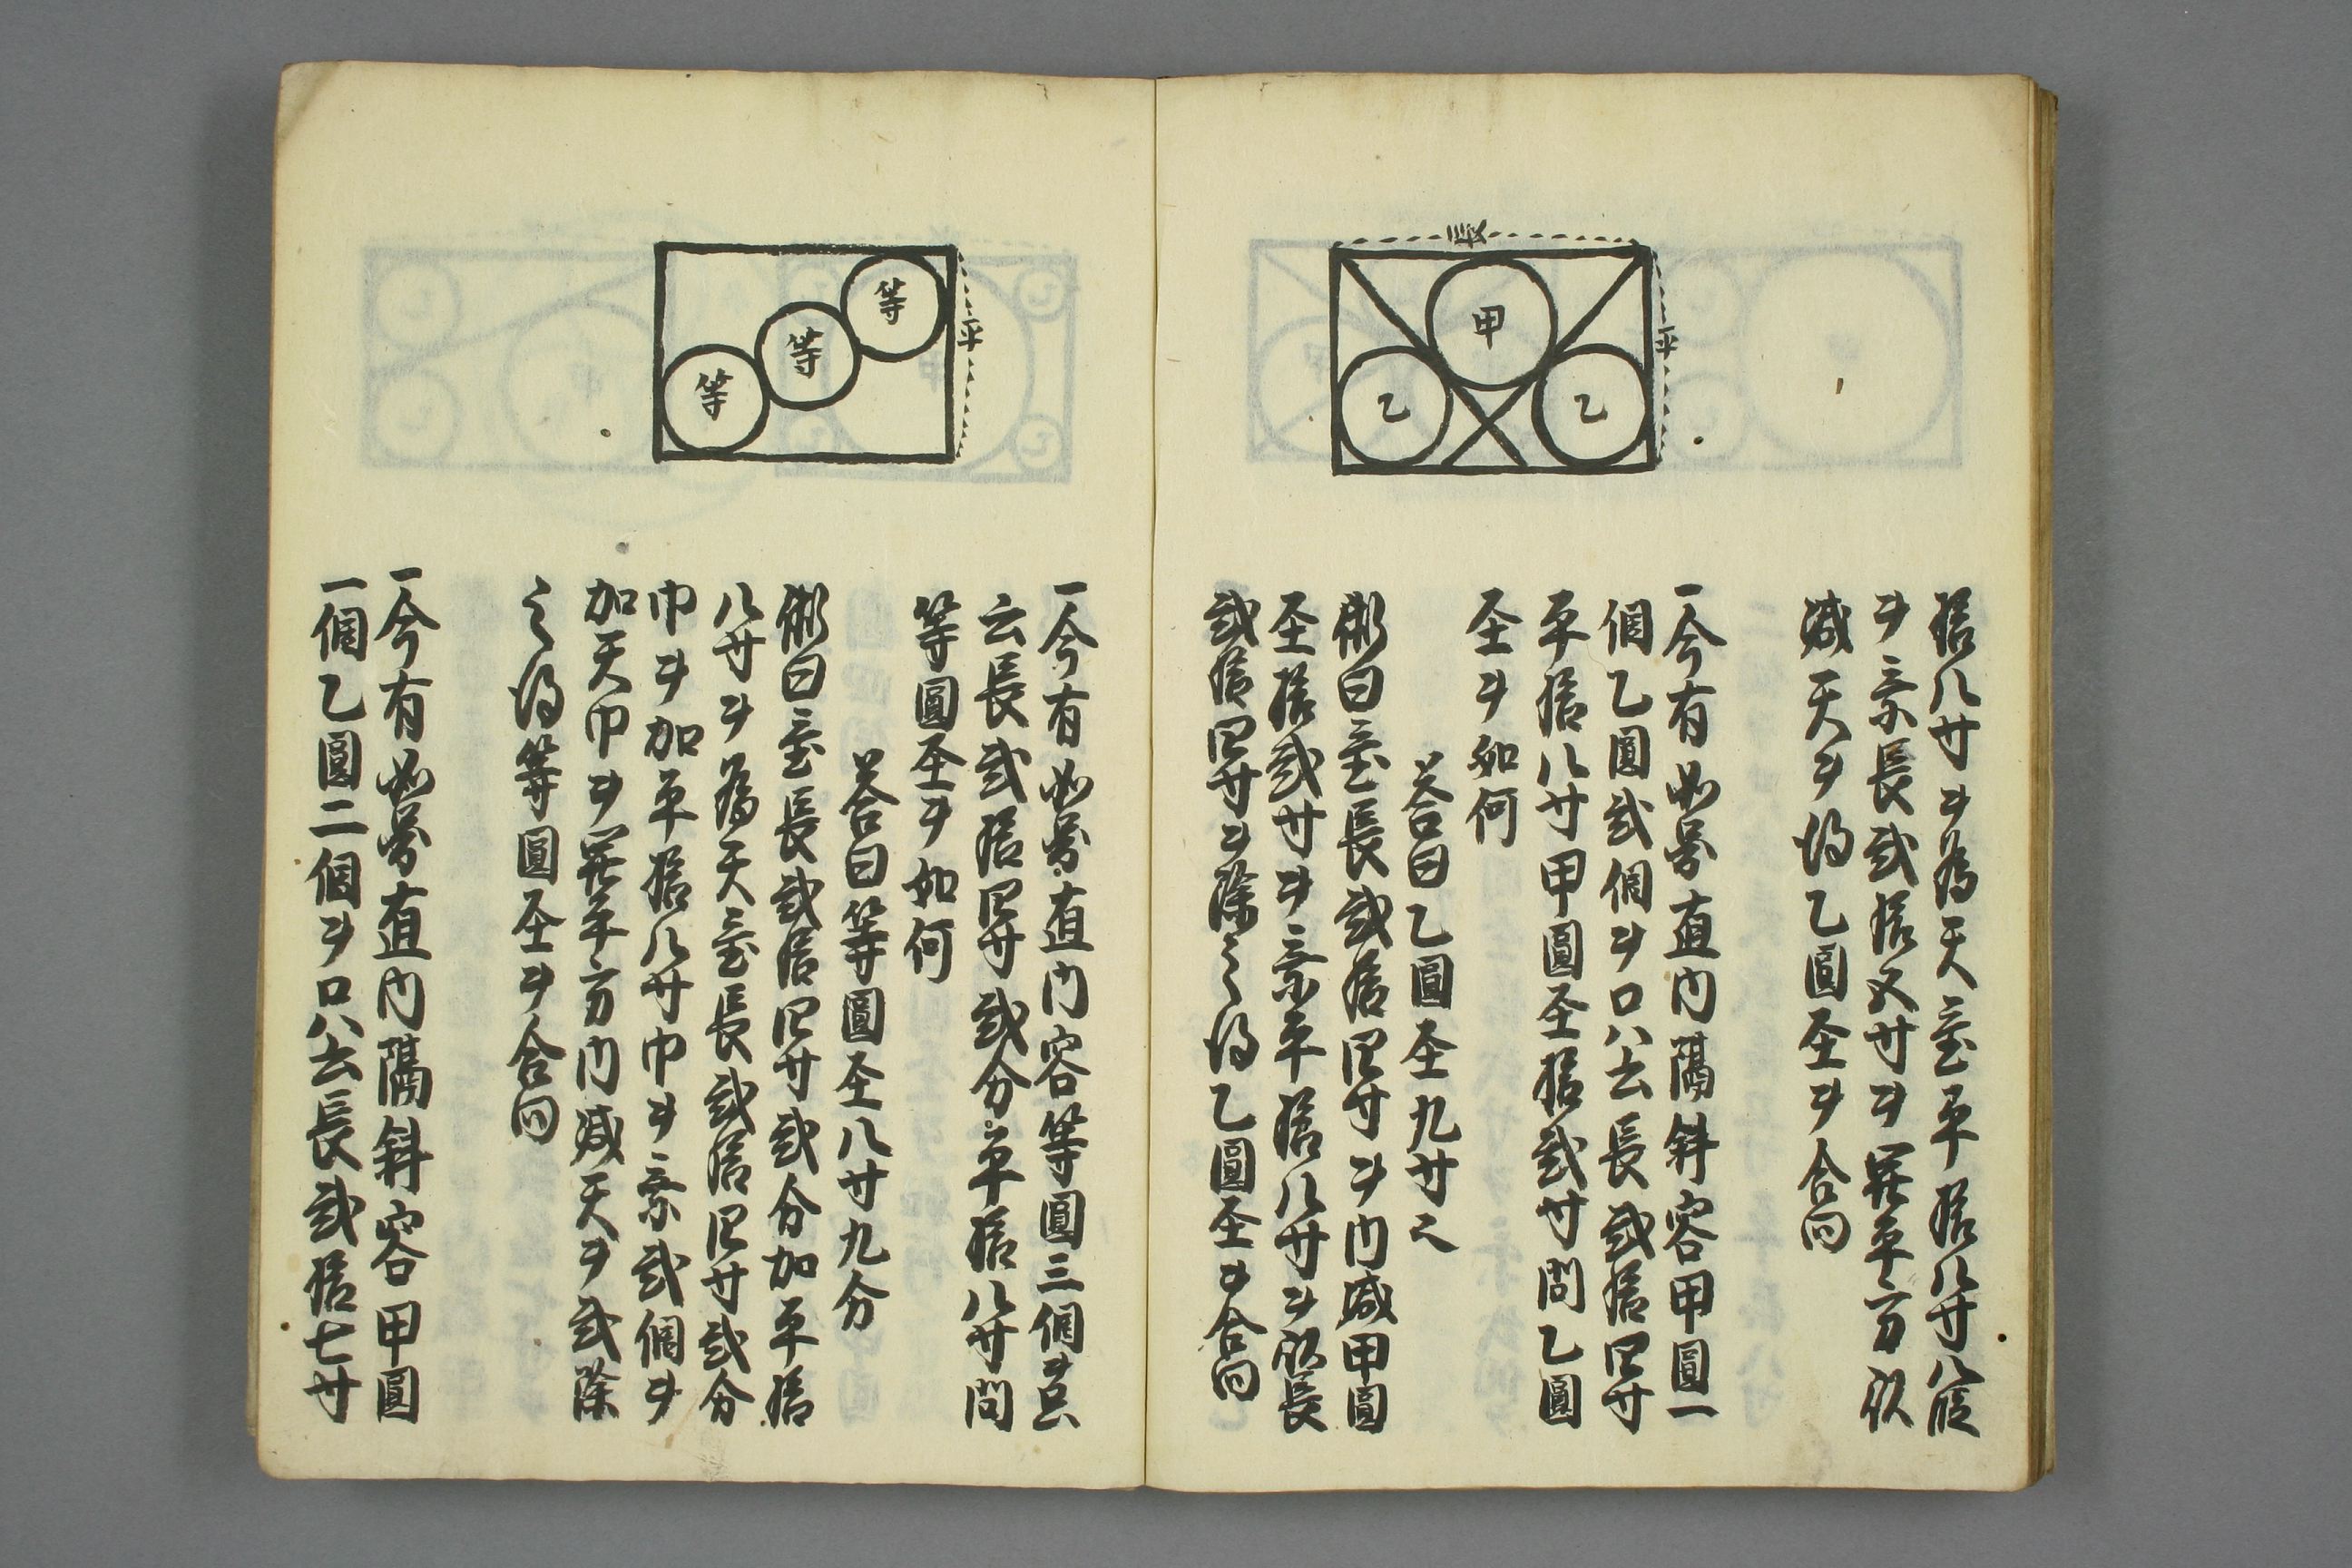 長
平
甲
乙
乙
拾八寸ヲ為天置平拾八寸八段
ヲ乗長弐拾五寸ヲ開平方以
減天ヲ得乙圓径ヲ合問
一今有如図直内隔斜容甲圓一
個乙圓弐個ヲ只云長弐拾四寸
平拾八寸甲圓径拾弐寸問乙圓
径ヲ如何
答曰乙圓径九寸之
術曰置長弐拾四寸ヲ内減甲圓
径拾弐寸ヲ乗平拾八寸ヲ以長
弐拾四寸ヲ除之得乙圓径ヲ合問
平
等
等
等
一今有如図直内容等圓三個ヲ只
云長弐拾四寸弐分平拾八寸問
等圓径ヲ如何
答曰等圓径八寸九分
術曰置長弐拾四寸弐分加平拾
八寸ヲ為天置長弐拾四寸弐分
巾ヲ加平拾八寸巾ヲ乗弐個ヲ
加天巾ヲ開平方内減天ヲ弐除
之得等圓径ヲ合問
一今有如図直内隔斜容甲圓
一個乙圓二個ヲ只云長弐拾七寸